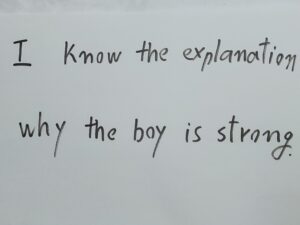 I know the explanation
why the boy is strong.